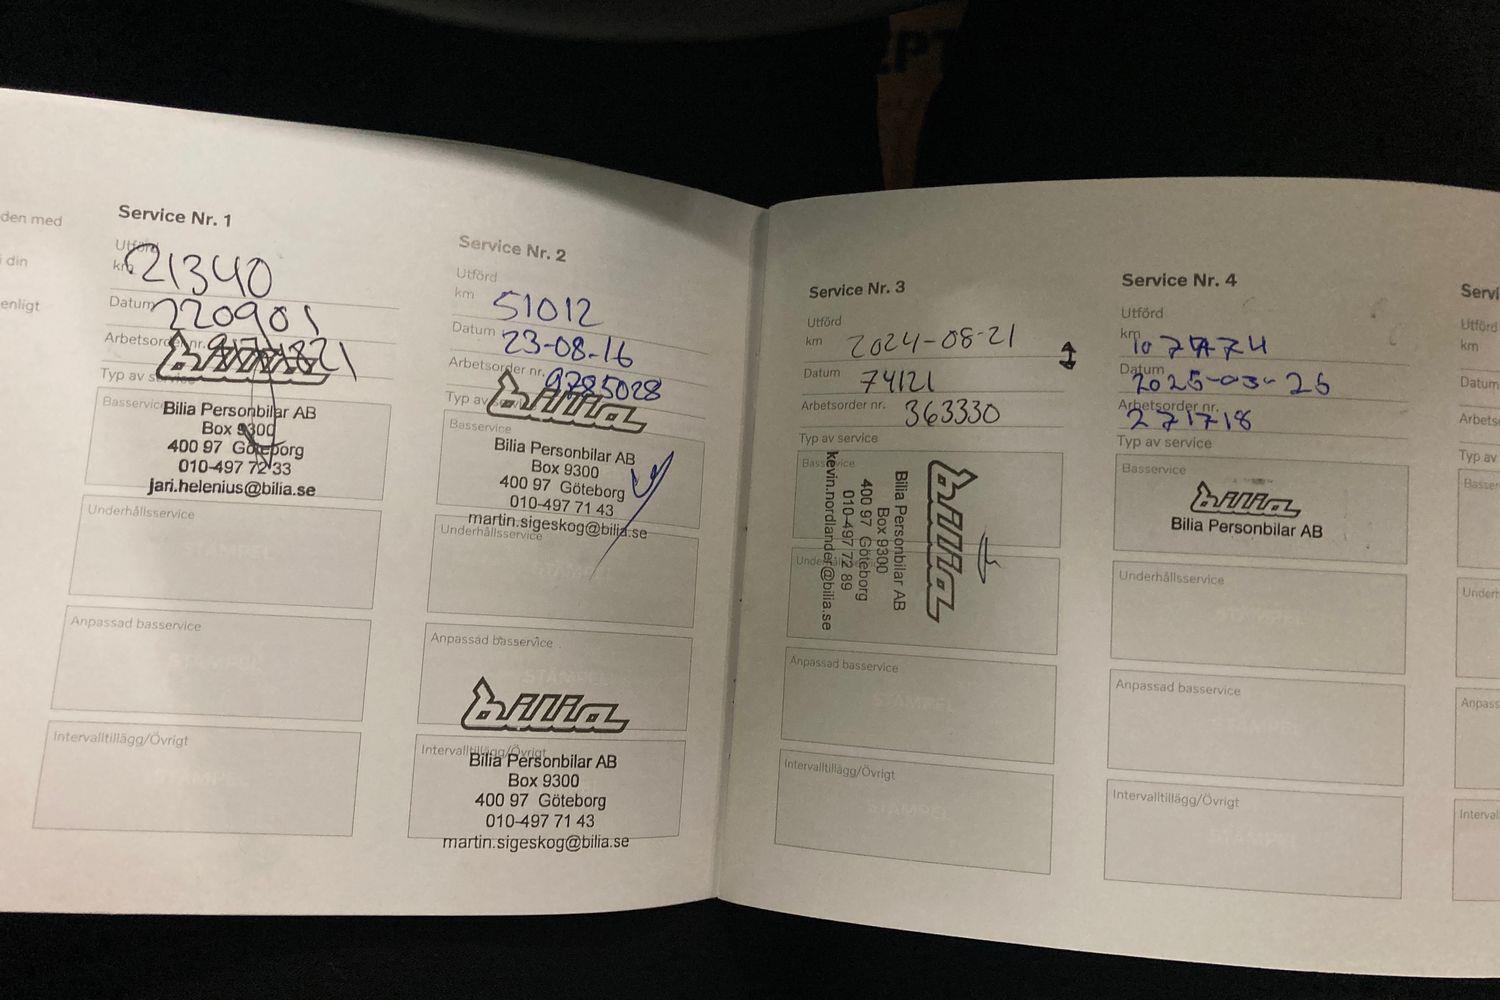 den med
i din
enligt
Service Nr. 1
Utförd
km 21340
Datum 220901
Arbetsorder nr.
Typ av service
Basservice
bilia
Bilia Personbilar AB
Box 9300
400 97 Göteborg
010-497 72 33
jari.helenius@bilia.se
Underhållsservice
STÄMPEL
Anpassad basservice
STÄMPEL
Intervalltillägg/Övrigt
STÄMPEL
Service Nr. 2
Utförd
km 51012
Datum 23-08-16
Arbetsorder nr. 9785028
Typ av service
Basservice
bilia
Bilia Personbilar AB
Box 9300
400 97 Göteborg
010-497 71 43
martin.sigeskog@bilia.se
Underhållsservice
Anpassad basservice
STÄMPEL
bilia
Intervalltillägg/Övrigt
Bilia Personbilar AB
Box 9300
400 97 Göteborg
010-497 71 43
martin.sigeskog@bilia.se
Service Nr. 3
Utförd
km 2024-08-21
Datum 74121
Arbetsorder nr. 363330
Typ av service
Basservice
bilia
Bilia Personbilar AB
Box 9300
400 97 Göteborg
010-497 72 89
kevin.nordlander@bilia.se
Anpassad basservice
STÄMPEL
Intervalltillägg/Övrigt
STÄMPEL
Service Nr. 4
Utförd
km
Datum 2025-03-26
Arbetsorder nr. 271718
Typ av service
Basservice
bilia
Bilia Personbilar AB
Underhållsservice
STÄMPEL
Anpassad basservice
Intervalltillägg/Övrigt
STÄMPEL
Servi
Utförd
km
Datum
Arbets
Typ av
Basser
Underh
Anpass
Interval